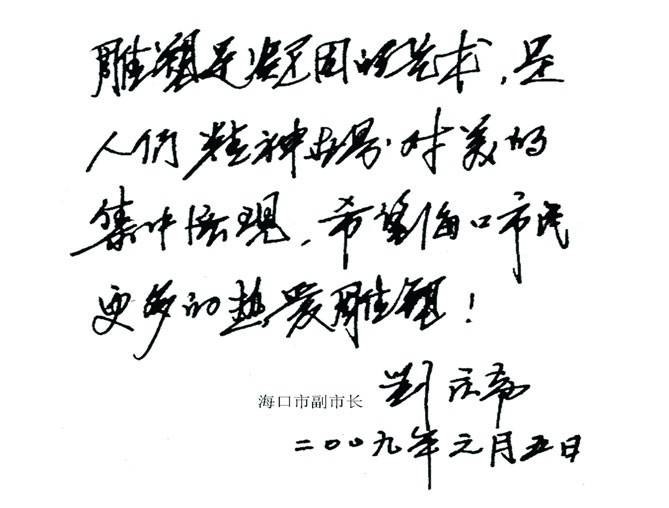 雕塑是凝固的艺术，是
人们精神世界对美的
集中展现，希望海口市民
更多的热爱雕塑！
海口市副市长 刘庆
二〇〇九年元月五日